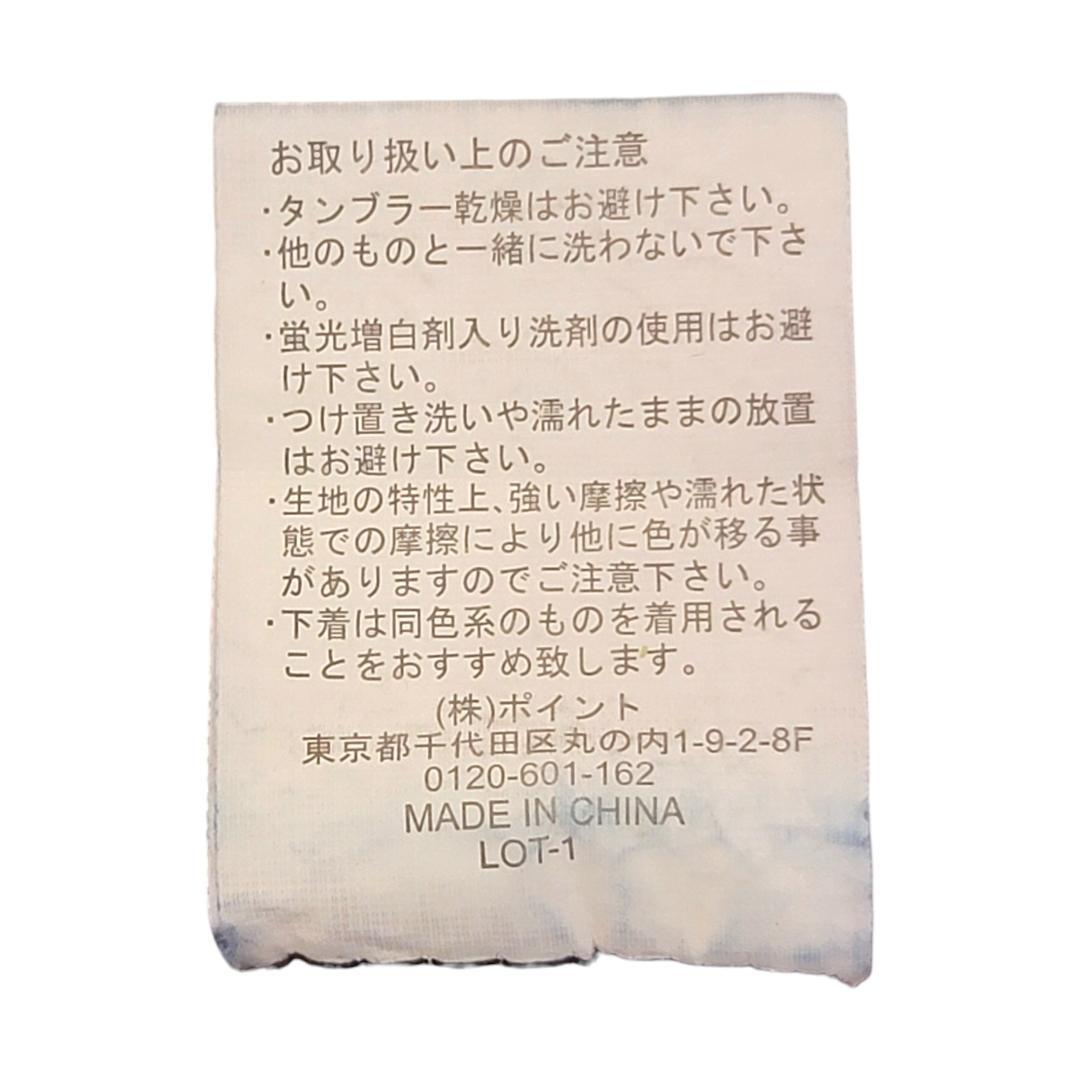 お取り扱い上のご注意
・タンブラー乾燥はお避け下さい。
・他のものと一緒に洗わないで下さ
い。
・蛍光増白剤入り洗剤の使用はお避
け下さい。
・つけ置き洗いや濡れたままの放置
はお避け下さい。
・生地の特性上、強い摩擦や濡れた状
態での摩擦により他に色が移る事
がありますのでご注意下さい。
・下着は同色系のものを着用される
ことをおすすめ致します。
(株)ポイント
東京都千代田区丸の内1-9-2-8F
0120-601-162
MADE IN CHINA
LOT-1